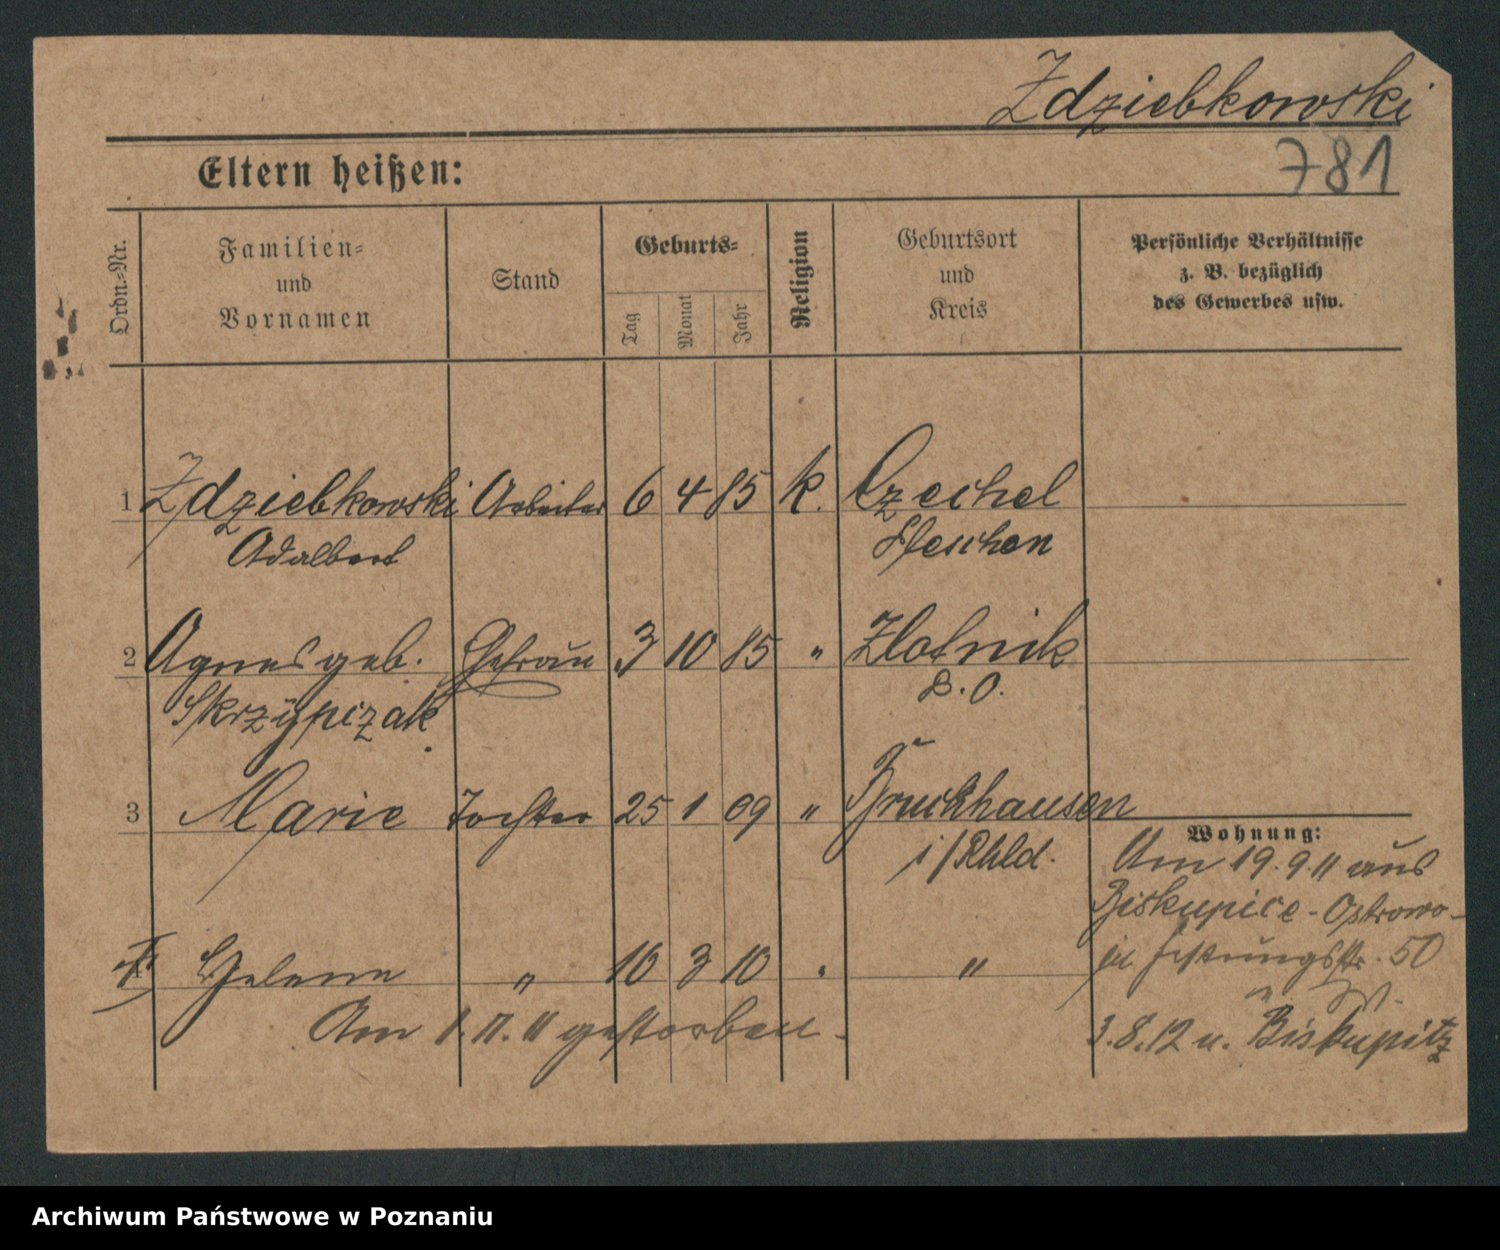 Zdziebkowski
781
Eltern heißen:
Ordn.-Nr.
Familien- und Vornamen
Stand
Geburts-
Tag
Monat
Jahr
Religion
Geburtsort und Kreis
Persönliche Verhältnisse
z. B. bezüglich
des Gewerbes usw.
1 Zdziebkowski Arbeiter 6 4 85 k. Czechel
Adalbert Pleschen
2 Agnes geb. Ehefrau 3 10 85 " Zlotnik
Skrzypczak P. O.
3 Marie Tochter 25 1 09 " Bruckhausen
i/Rhld.
Helene " 10 3 10 " "
Am 1.11.11 gestorben.
Wohnung:
Am 19.9.11 aus
Biskupice-Ostrowo-
in Festungsstr. 50
3.8.12 n. Biskupitz
Archiwum Państwowe w Poznaniu